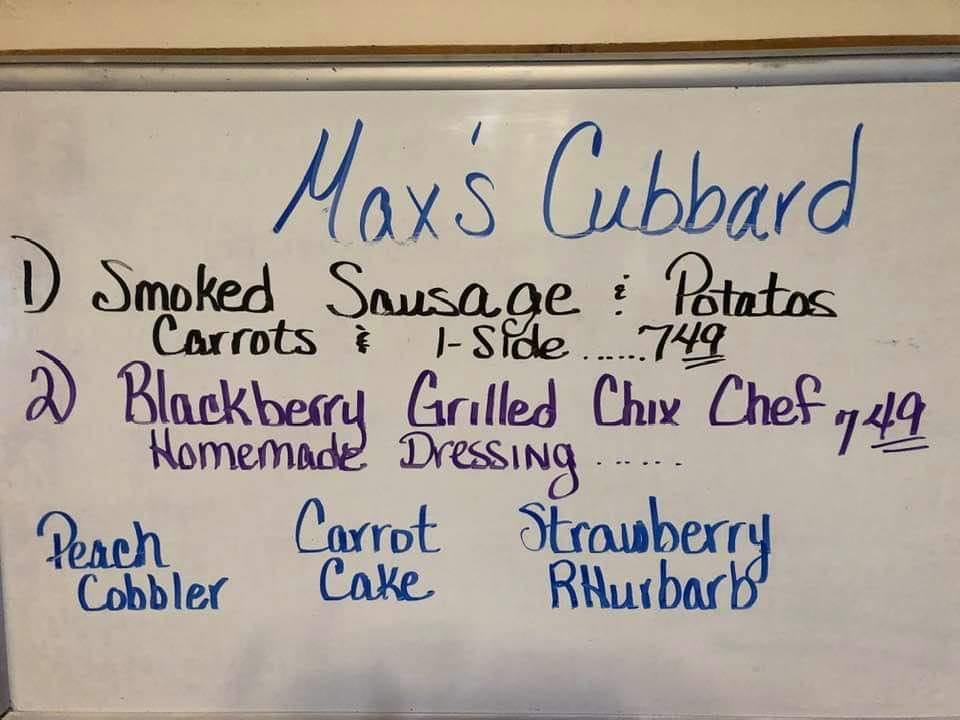 Max's Cubbard
1) Smoked Sausage & Potatos
Carrots & 1-Side ......7 49
2) Blackberry Grilled Chix Chef 7 49
Homemade Dressing ......
Peach Carrot Strawberry
Cobbler Cake RHurbarb